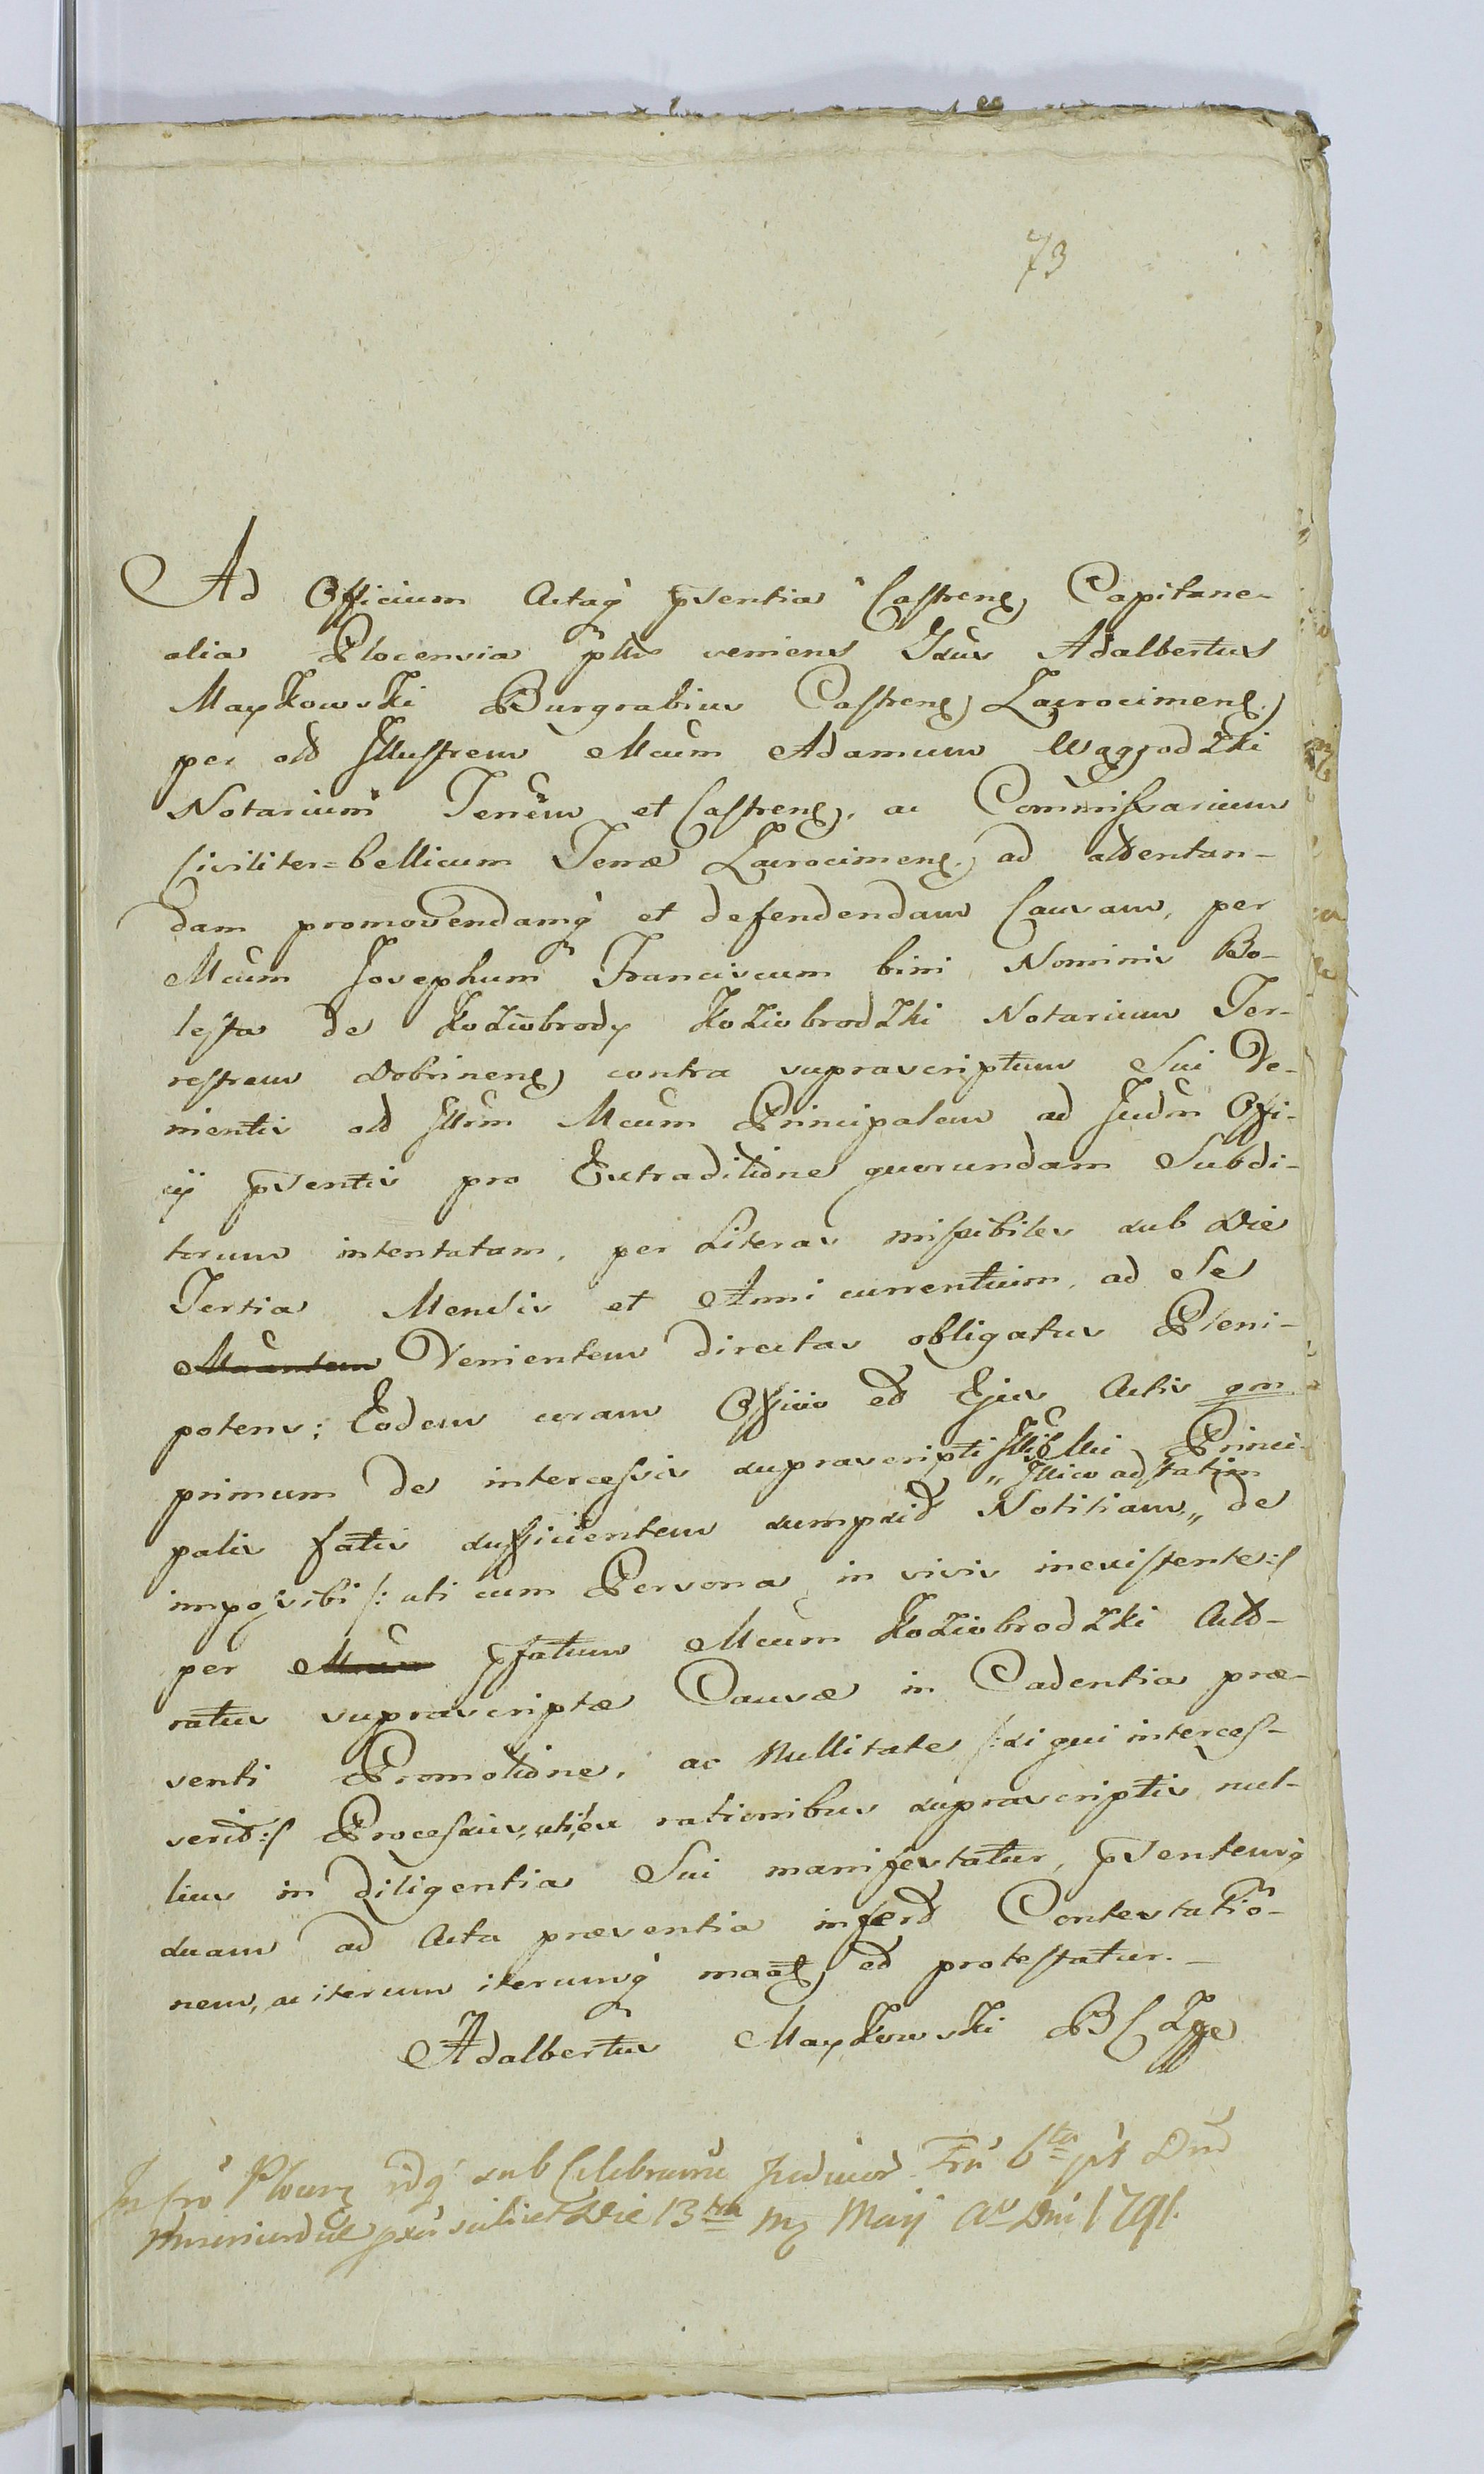 73
Ad Officium Actaq̀ p̄sentia Castren̄ Capitane-
alia Plocensia p̄lr veniens Gdus Adalbertus
Maykowski Burgrabius Castren̄ Zacrocimen̄.
per olд Illustrem Mcum Adamum Wągrodzki
Notarium Terrēm et Castren̄. ac Commissarium
Civiliter=bellicum Terræ Zacrocimen̄. ad attentan-
dam promovendamq̀ et defendendam Causam, per
Mcum Josephum Franciscum bini Nominis Bo-
lesta de Koziebrody Koziebrodzki Notarium Ter-
restrem Dobrinen̄ contra suprascriptum Sui Ve-
nientis olд Illrm Mcum Principalem ad Judm Offi-
cy p̄sentis pro Extraditione quorundam Subdi-
torum intentatam, per Literas missibiles sub Die
Tertia Mensis et Anni currentium, ad Se
Venientem directas obligatus Pleni-
potens; Eodem coram Officio et Ejus Actis qm
primum de intercessis suprascripti Illris Mci Princi-
"Illico ad statim
palis fatis sufficientem sumpsit Notitiam," de
impossibi /: uti cum Persona in vivis inexistente :/
per p̄fatum Mcum Koziebrodzki Atten-
ratus suprascriptæ Causæ in Cadentia præ-
senti Promotione, ac Nullitate /: si qui interces-
serit :/ Processus, uti ex rationibus suprascriptis nul-
lius in diligentia Sui manifestatur, p̄sentemq̀
suam ad Acta præsentia infert Contestatio-
nem, ac iterum iterumq̀ et protestatur.-
Adalbertus Maykowski B C Z
In Cro sub Celebraōne Judicior 6ta Dnd
scilicet Die 13tia Maij Ao Dni 1791.